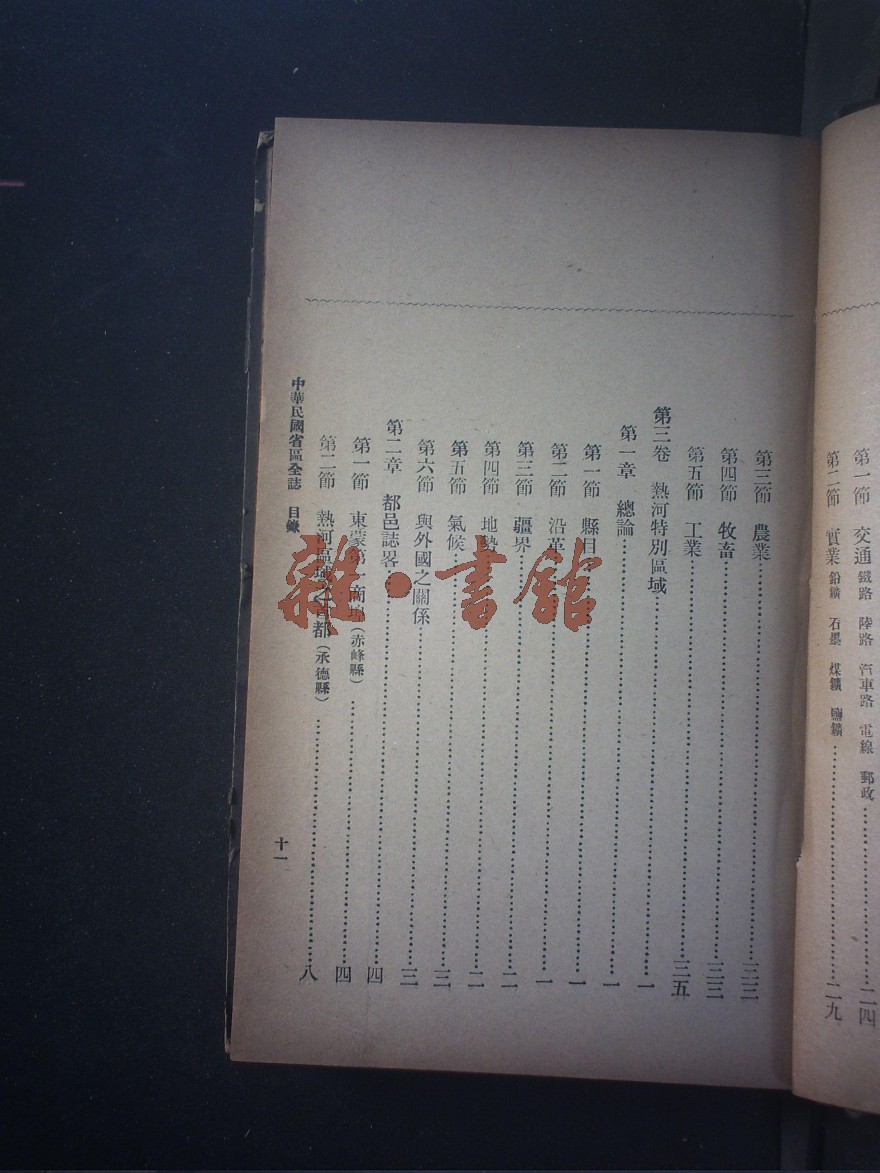 第一節 交通 鐵路 陸路 汽車路 電線 郵政……二四
第二節 實業 鉛鑛 石墨 煤鑛 鹽鑛……二九
第三節 農業……三三
第四節 牧畜……三三
第五節 工業……三五
第三卷 熱河特別區域……一
第一章 總論……一
第一節 縣目……一
第二節 沿革……一
第三節 疆界……二
第四節 地勢……二
第五節 氣候……三
第六節 與外國之關係……三
第二章 都邑誌畧……四
第一節 東蒙第一商埠(赤峰縣)……四
第二節 熱河區域之首都(承德縣)……八
中華民國省區全誌 目錄
十一
雜·書館